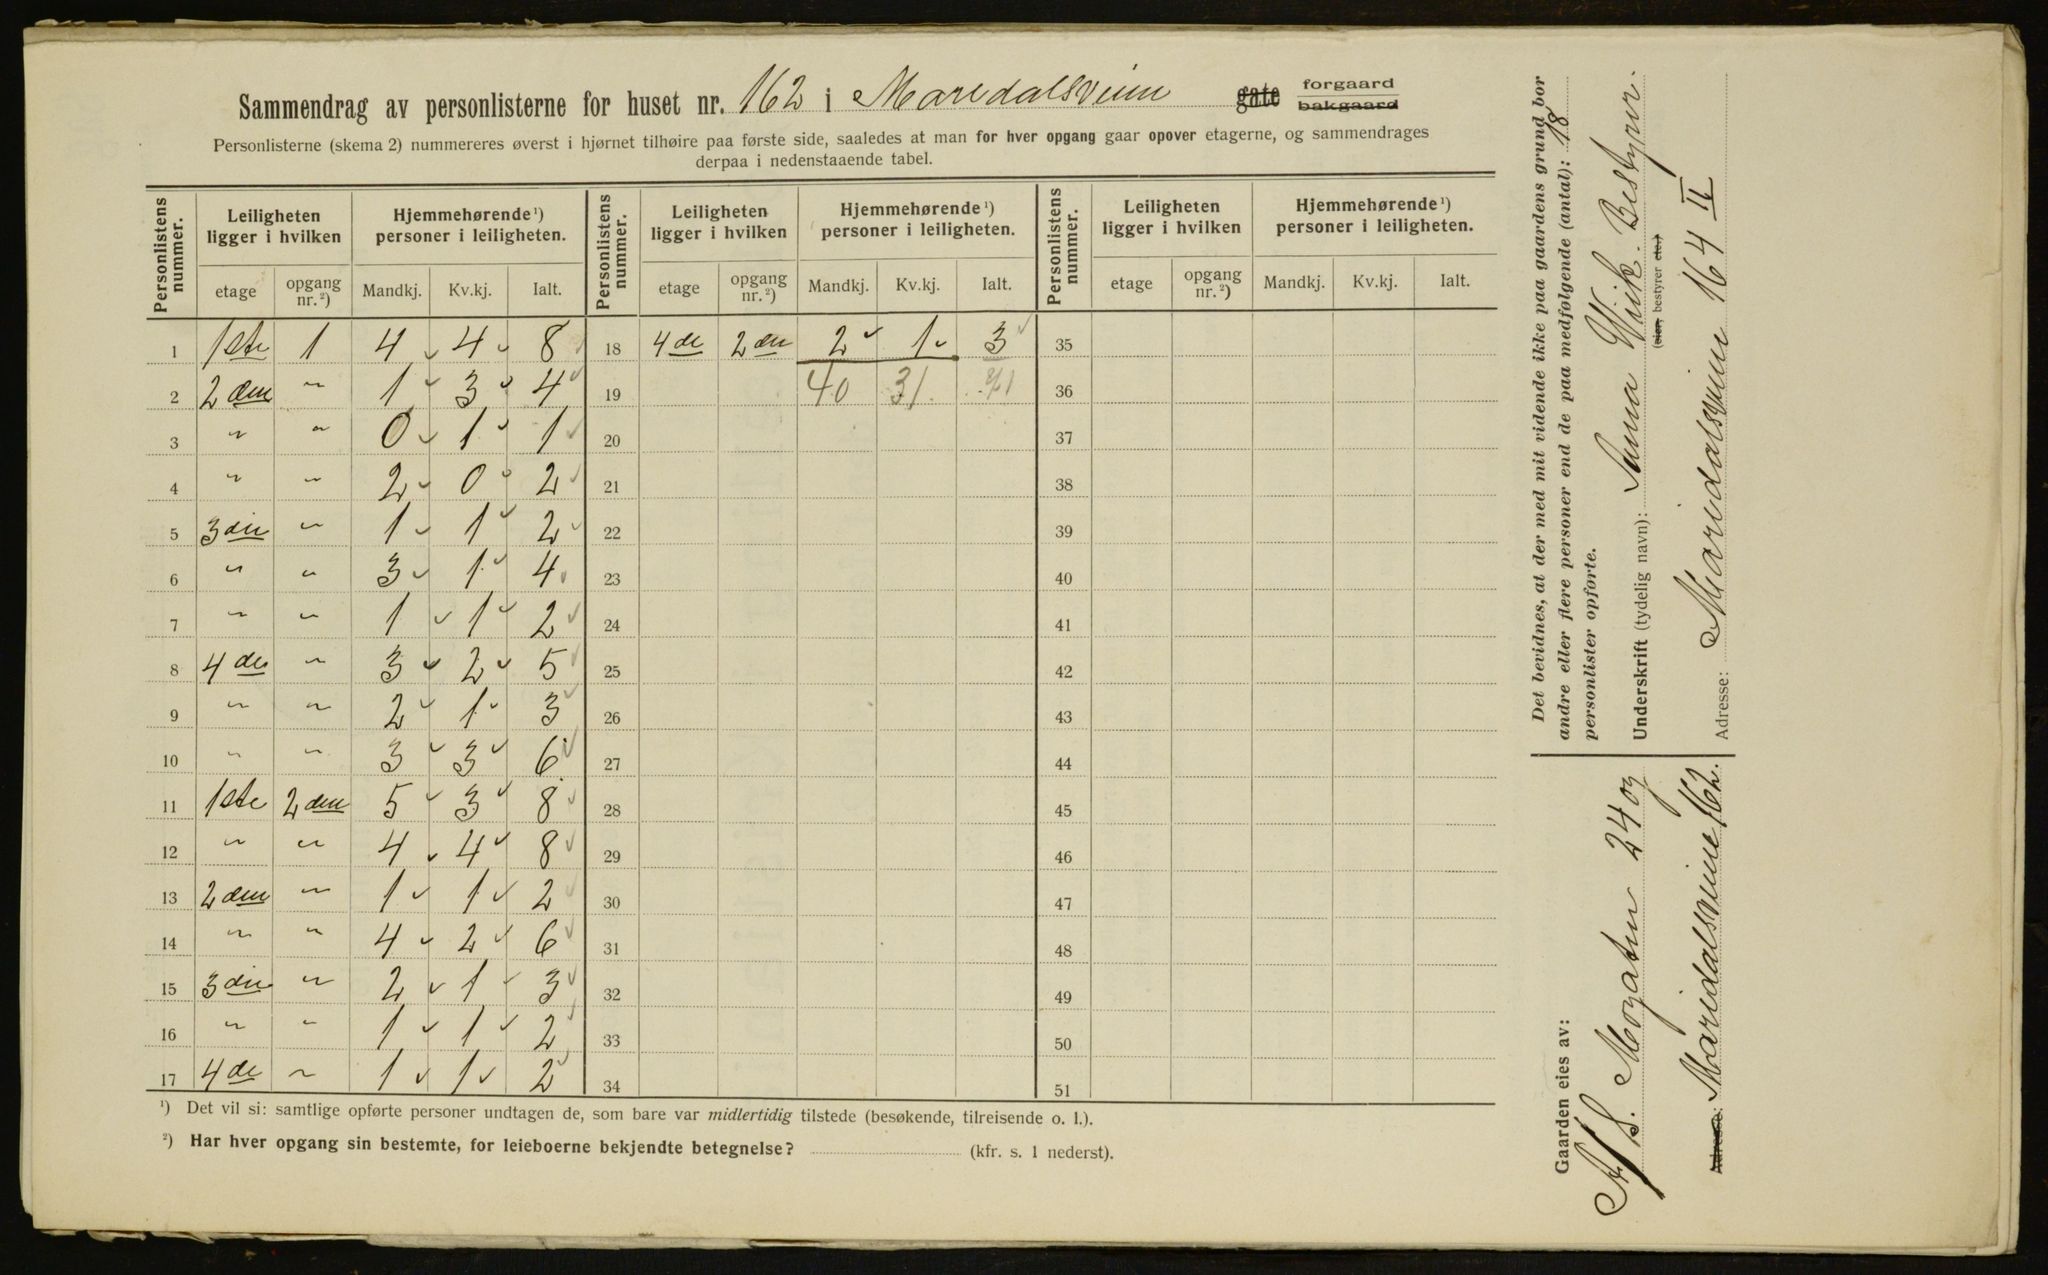 Sammendrag av personlisterne for huset nr. 162 i Maridalsveien ~~gate~~ forgaard ~~bakgaard~~
Personlisterne (skema 2) nummereres øverst i hjørnet tilhøire paa første side, saaledes at man for hver opgang gaar opover etagerne, og sammendrages
derpaa i nedenstaaende tabel.
Personlistens nummer. Leiligheten ligger i hvilken Hjemmehørende ¹) personer i leiligheten. Personlistens nummer. Leiligheten ligger i hvilken Hjemmehørende ¹) personer i leiligheten. Personlistens nummer. Leiligheten ligger i hvilken Hjemmehørende ¹) personer i leiligheten.
etage opgang nr. ²) Mandkj. Kv.kj. Ialt. etage opgang nr. ²) Mandkj. Kv.kj. Ialt. etage opgang nr. ²) Mandkj. Kv.kj. Ialt.
1 1ste 1 4 4 8 18 4de 2den 2 1 3 35
2 2den " 1 3 4 19 40 31 71 36
3 " " 0 1 1 20 37
4 " " 2 0 2 21 38
5 3die " 1 1 2 22 39
6 " " 3 1 4 23 40
7 " " 1 1 2 24 41
8 4de " 3 2 5 25 42
9 " " 2 1 3 26 43
10 " " 3 3 6 27 44
11 1ste 2den 5 3 8 28 45
12 " " 4 4 8 29 46
13 2den " 1 1 2 30 47
14 " " 4 2 6 31 48
15 3die " 2 1 3 32 49
16 " " 1 1 2 33 50
17 4de " 1 1 2 34 51
¹) Det vil si: samtlige opførte personer undtagen de, som bare var midlertidig tilstede (besøkende, tilreisende o. l.).
²) Har hver opgang sin bestemte, for leieboerne bekjendte betegnelse? (kfr. s. 1 nederst).
Det bevidnes, at der med mit vidende ikke paa gaardens grund bor
andre eller flere personer end de paa medfølgende (antal): 18
personlister opførte.
Underskrift (tydelig navn): Anna Wiik. Bestyrer.
(~~eier,~~ bestyrer ~~etc.~~)
Adresse: Maridalsveien 164 II
Gaarden eies av:
A/S. Mogaten 24 og
~~Adresse:~~ Maridalsveien 162.